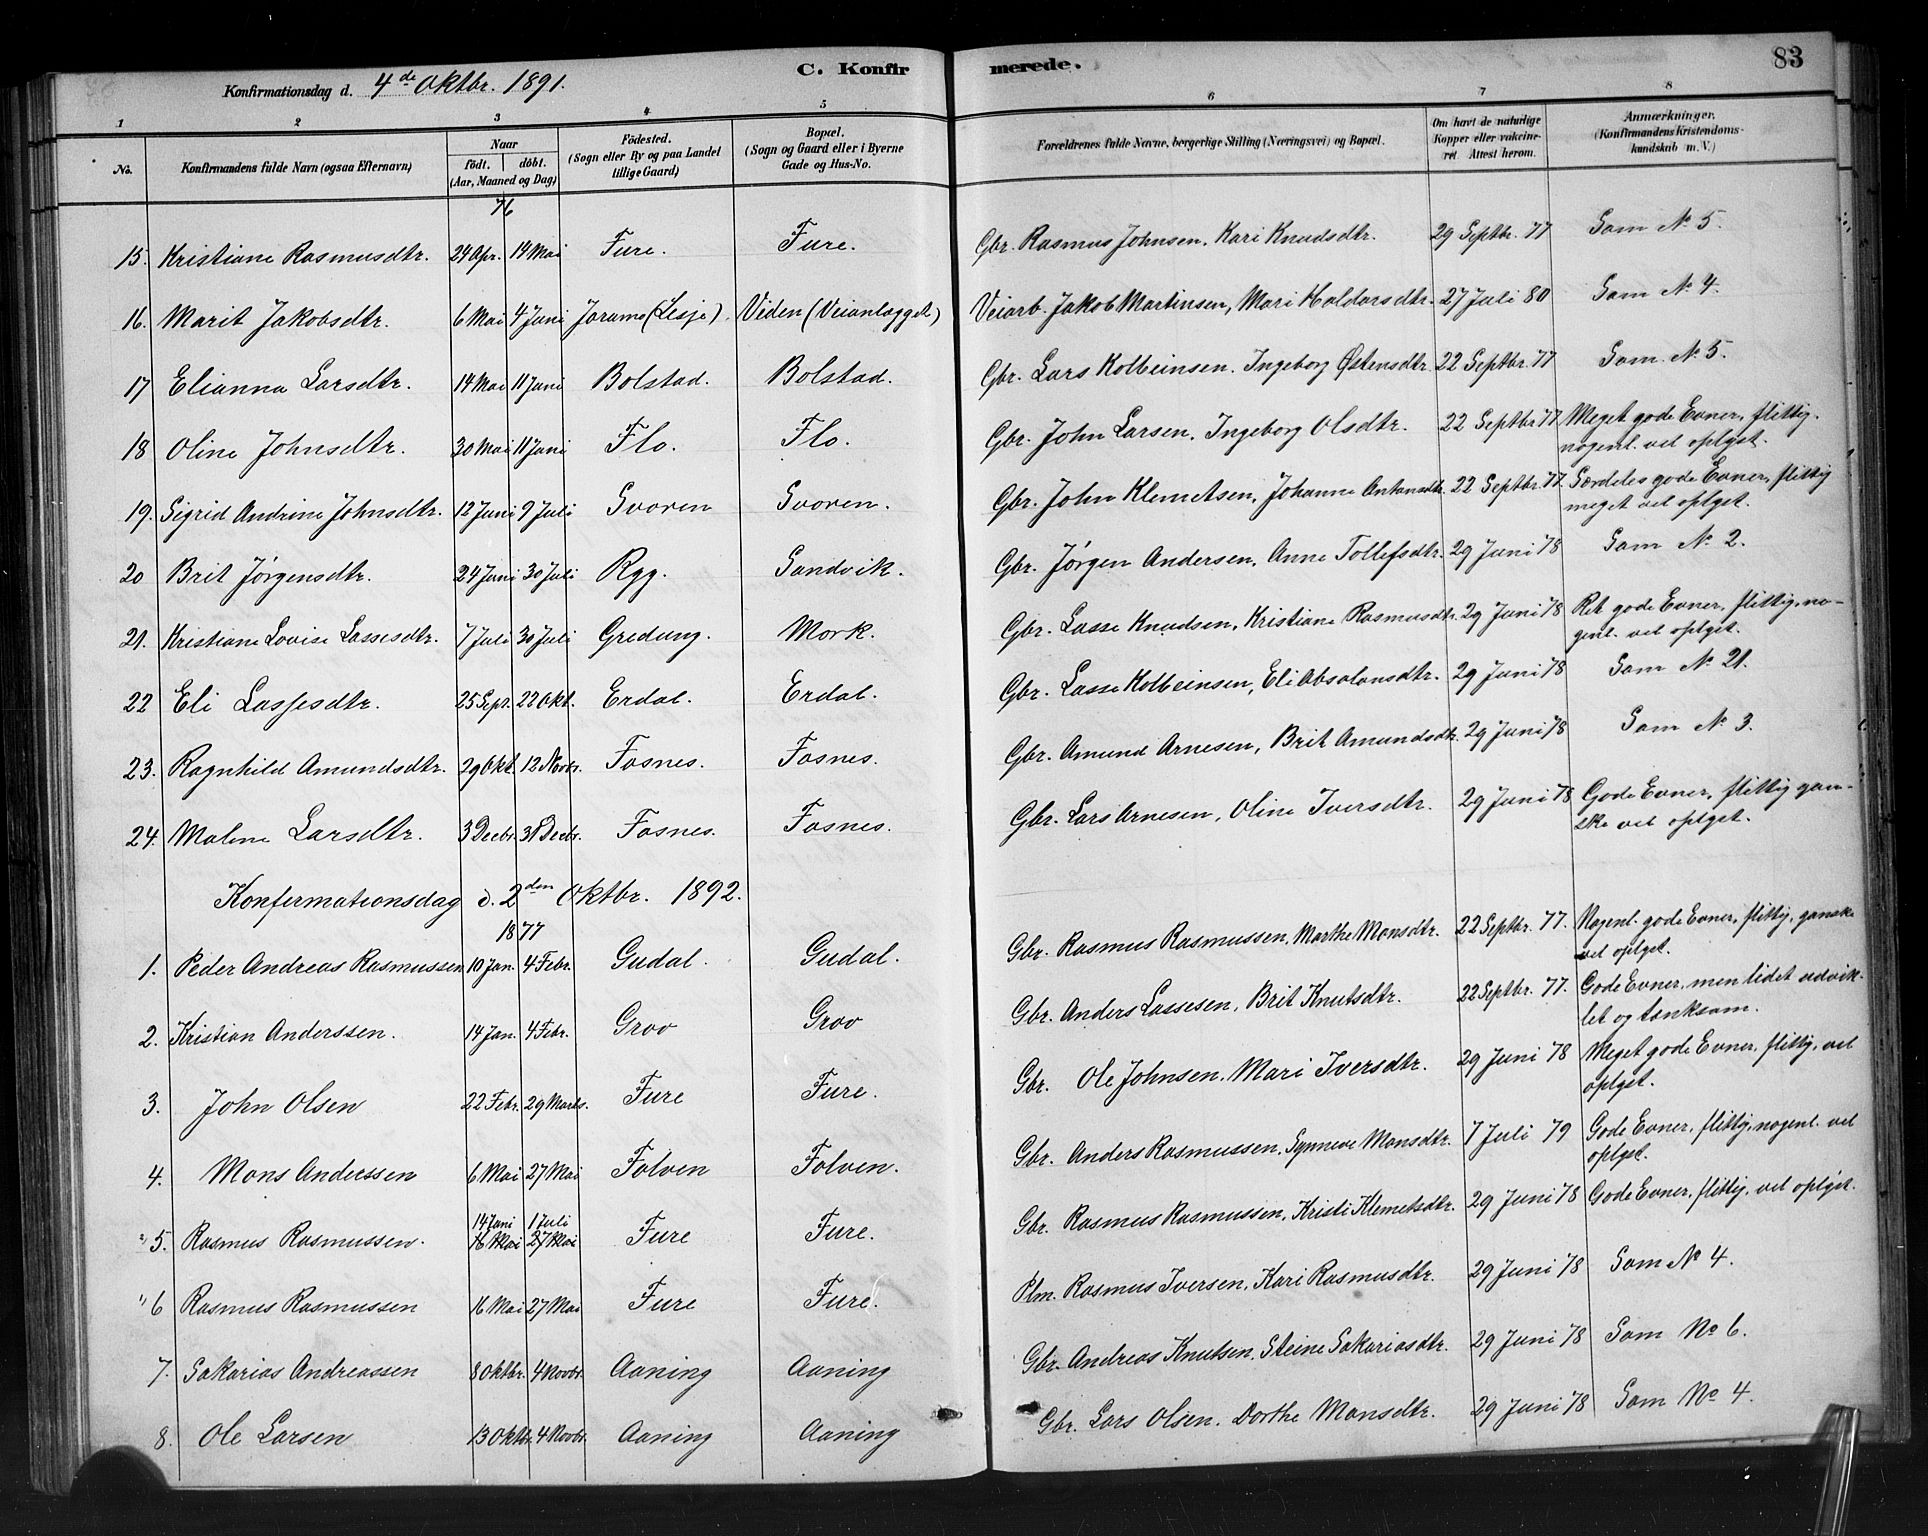 C. Konfirmerede. 83
Konfirmationsdag d. 4de Oktbr. 1891.
1 2 3 4 5 6 7 8
No. Konfirmandens fulde Navn (ogsaa Efternavn) Naar födt. döbt. (Aar, Maaned og Dag) Födested. (Sogn eller By og paa Landet tillige Gaard) Bopæl. (Sogn og Gaard eller i Byerne Gade og Hus-No. Forældrenes fulde Navne, borgerlige Stilling (Næringsvei) og Bopæl. Om havt de naturlige Kopper eller vakcineret Attest herom. Anmærkninger. (Konfirmandens Kristendomskundskab m. V.)
76
15. Kristiane Rasmusdtr. 24 Apr. 14 Mai Fure. Fure. Gbr. Rasmus Johnsen, Kari Knudsdtr. 29 Septbr. 77 Som No 5.
16. Marit Jakobsdtr. 6 Mai 4 Juni Joramo (Lesje). Viden (Veianlægget) Veiarb. Jakob Martinsen, Mari Haldorsdtr. 27 Juli 80 Som No 4.
17 Elianna Larsdtr. 14 Mai 11 Juni Bolstad. Bolstad. Gbr. Lars Kolbeinsen, Ingeborg Østensdtr. 22 Septbr. 77 Som No 5.
18 Oline Johnsdtr. 30 Mai 11 Juni Flo. Flo. Gbr. John Larsen, Ingeborg Olsdtr. 22 Septbr 77 Meget gode Evner, flittig.
nogenl. vel oplyst.
19. Sigrid Andrine Johnsdtr. 12 Juni 9 Juli Svoren Svoren. Gbr. John Klemetsen, Johanne Antonsdtr. 22 Septbr. 77. Særdeles gode Evner, flittig
meget vel oplyst.
20 Brit Jørgensdtr. 24 Juni 30 Juli Rygg. Sandvik. Gbr. Jørgen Andersen, Anne Tollefsdtr. 29 Juni 78 Som No 2.
21. Kristiane Lovise Lassesdtr. 7 Juli 30 Juli Gredung. Mork. Gbr. Lasse Knudsen, Kristiane Rasmusdtr. 29 Juni 78 Ret gode Evner, flittig, no-
genl. vel oplyst.
22 Eli Lassesdtr. 25 Sept. 22 Okt. Erdal. Erdal. Gbr. Lasse Kolbeinsen, Eli Absalonsdtr. 29 Juni 78 Som No 21.
23. Ragnhild Amundsdtr. 29 Okt. 12 Novbr. Fosnes. Fosnes. Gbr. Amund Arnesen, Brit Amundsdtr. 29 Juni 78 Som No 3.
24. Malene Larsdtr. 3 Decbr. 31 Decbr. Fosnes. Fosnes. Gbr. Lars Arnesen, Oline Iversdtr. 29 Juni 78 Gode Evner, flittig gan-
ske vel oplyst.
Konfermationsdag d. 2den Oktbr. 1892.
1877
1. Peder Andreas Rasmussen 10 Jan. 4 Febr. Gudal. Gudal. Gbr. Rasmus Rasmussen, Marthe Monsdtr. 22 Septbr. 77. Nogenl. gode Evner, flittig, ganske
vel oplyst.
2. Kristian Anderssen. 14 Jan. 4 Febr. Grov Grov Gbr. Anders Lassesen, Brit Knutsdtr. 22 Septbr. 77. Gode Evner, men lidet udvik-
let og tænksom.
3. John Olsen 22 Febr. 29 Marts. Fure Fure. Gbr. Ole Johnsen, Mari Iversdtr. 29 Juni 78 Meget gode Evner, flittig, vel
oplyst.
4. Mons Anderssen 6 Mai 27 Mai Folven Folven. Gbr. Anders Rasmussen, Synneve Monsdtr. 7 Juli 79 Gode Evner, flittig, nogenl. vel
oplyst.
14 Juni 1 Juli
5. Rasmus Rasmussen. 16 Mai 27 Mai Fure Fure. Gbr. Rasmus Rasmussen, Kristi Klemetsdtr. 29 Juni 78 Gode Evner, flittig, vel oplyst.
6 Rasmus Rasmussen 16 Mai 27 Mai Fure Fure. Plm. Rasmus Iversen, Kari Rasmusdtr. 29 Juni 78 Som No 4.
7. Sakarias Andreassen 8 Oktbr. 4 Novbr. Aaning Aaning Gbr. Andreas Knutsen, Steine Sakariasdtr. 29 Juni 78 Som No 6.
8. Ole Larsen 13 Oktbr. 4 Novbr. Aaning Aaning Gbr. Lars Olsen, Dorthe Monsdtr. 29 Juni 78 Som No 4.